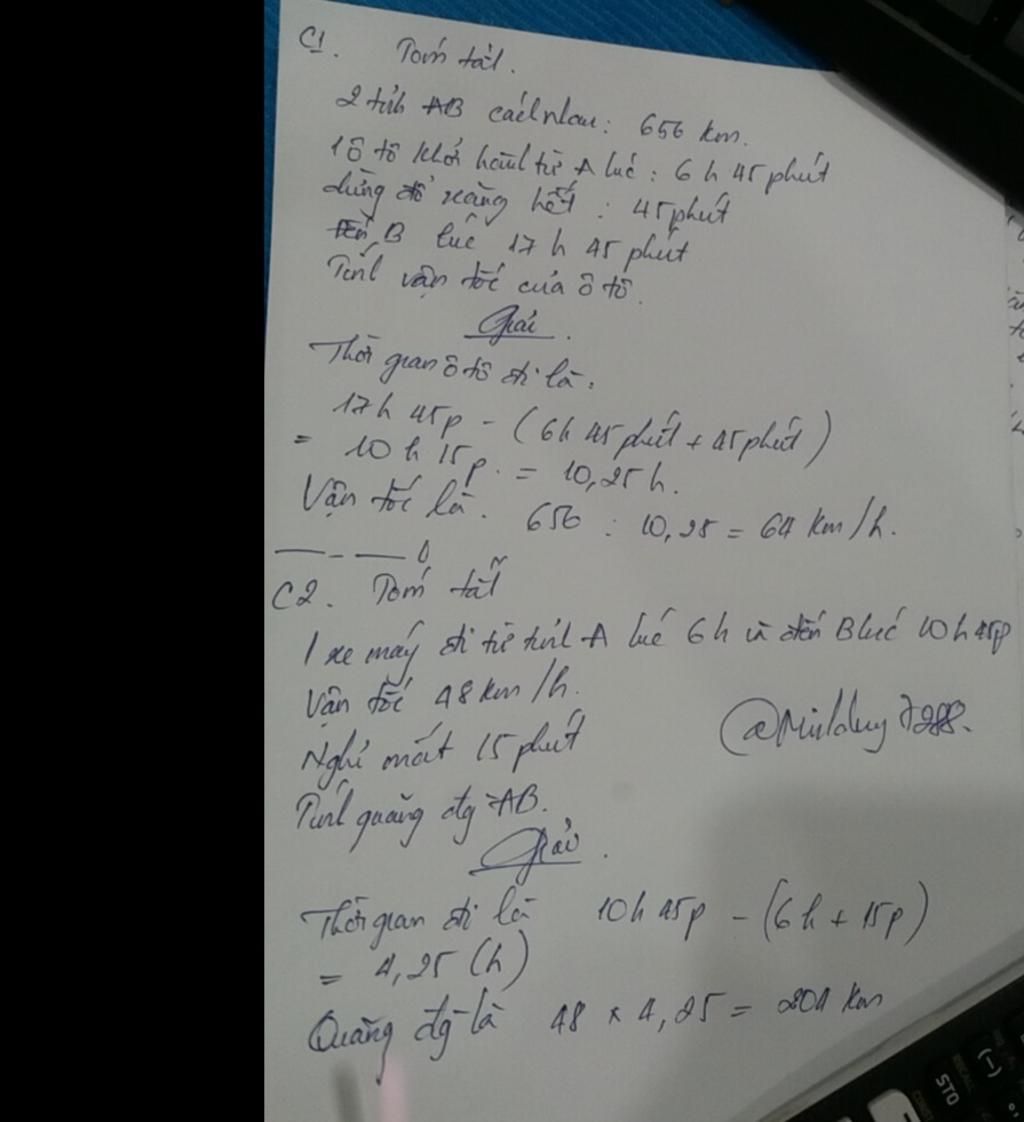 C1. Tóm tắt.
2 tỉnh AB cách nhau: 656 km.
1 ô tô khởi hành từ A lúc: 6 h 45 phút
dừng đổ xăng hết: 45 phút
Đến B lúc 17 h 45 phút
Tính vận tốc của ô tô.
Giải.
Thời gian ô tô đi là:
17h 45p - (6h 45 phút + 45 phút)
= 10 h 15p. = 10,25 h.
Vận tốc là. 656 : 10,25 = 64 km/h.
C2. Tóm tắt
1 xe máy đi từ tỉnh A lúc 6h và đến B lúc 10h 45p
Vận tốc 48 km/h.
@Minhduy7288.
Nghỉ mất 15 phút
Tính quãng đg AB.
Giải.
Thời gian đi là 10h 45p - (6h + 15p)
= 4,25 (h)
Quãng đg là 48 x 4,25 = 204 km
STO
(-)